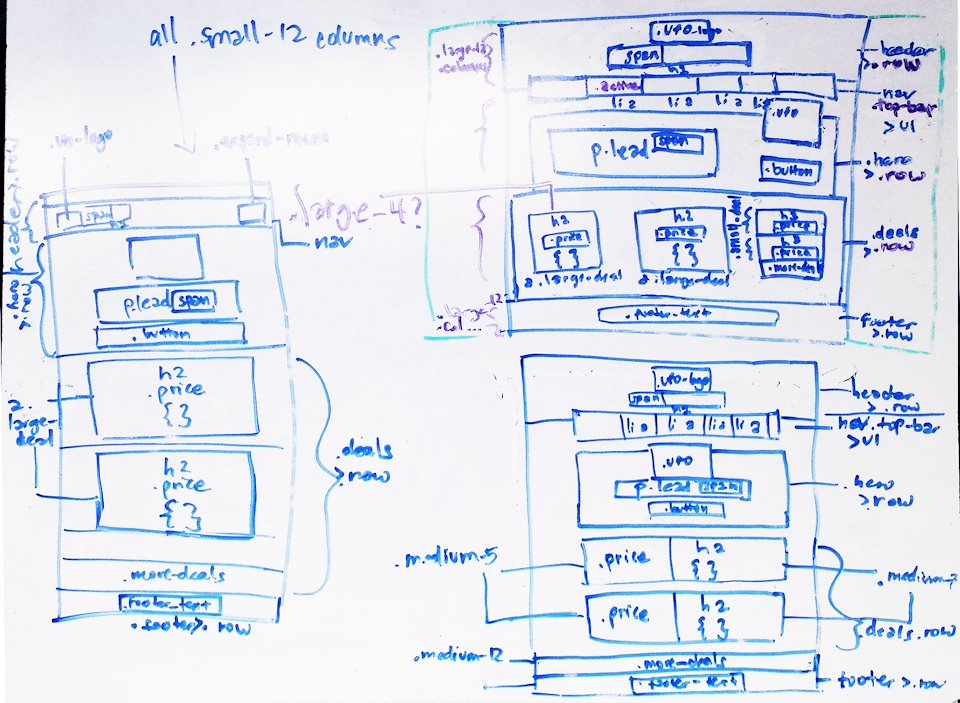 all .small-12 columns
.ufo-logo
.expand-menu
header>.row
span
h2
nav
.hero
>.row
p.lead span
.button
a.
large-
deal
h2
.price
{ }
h2
.price
{ }
.deals
>.row
.more-deals
.footer-text
.footer>.row
.large-12
.columns
.large-4?
.large-12
.col...
.ufo-logo
span
h2
.active
li a
li a
li a
li a
.ufo
p.lead span
.button
h2
.price
{ }
a.large-deal
h2
.price
{ }
a.large-deal
.small-deal
h2
.price
h2
.price
.more-deal
.footer-text
header
>.row
nav
.top-bar
>ul
.hero
>.row
.deals
>.row
footer
>.row
.ufo-logo
span
h2
li a
li a
li a
li a
.ufo
p.lead span
.button
.price
h2
{ }
.price
h2
{ }
.more-deals
.footer-text
header
>.row
nav.top-bar
>ul
.hero
>row
.medium-5
.medium-7
{deals.row
.medium-12
footer>.row